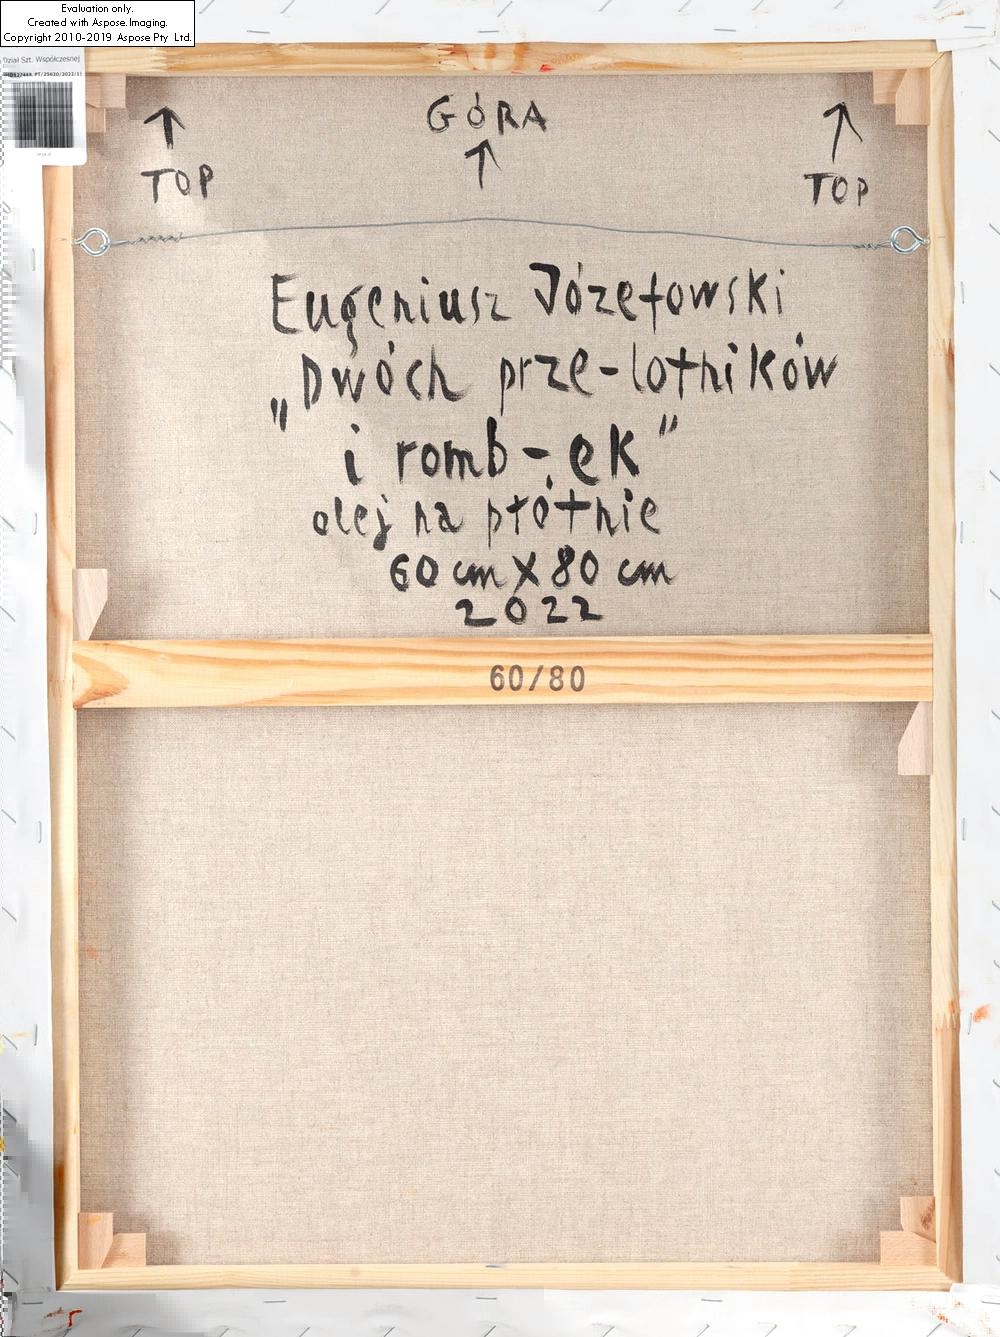 Evaluation only.
Created with Aspose.Imaging.
Copyright 2010-2019 Aspose Pty Ltd.
Dział Szt. Współczesnej
GÓRA
TOP
TOP
Eugeniusz Józefowski
„Dwóch prze-lotników
i romb-ek”
olej na płótnie
60 cm X 80 cm
2022
60/80